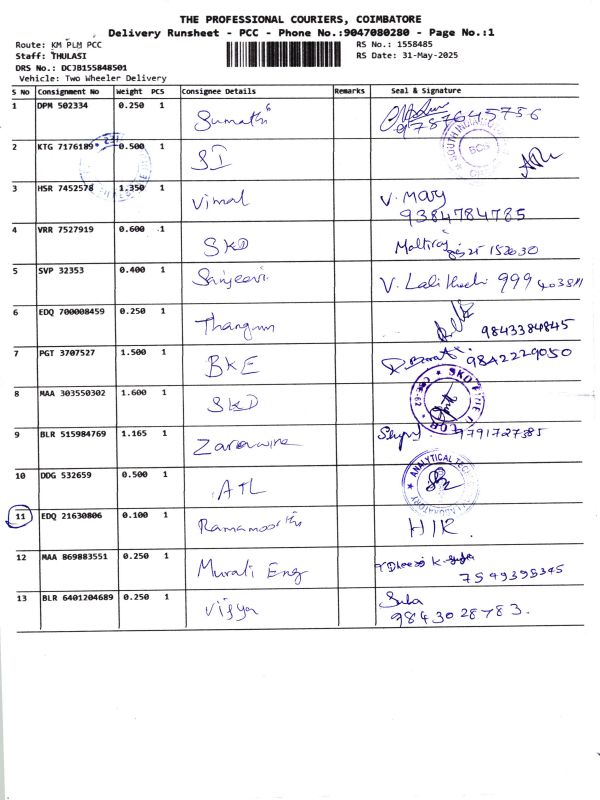 THE PROFESSIONAL COURIERS, COIMBATORE
Delivery Runsheet - PCC - Phone No.:9047080280 - Page No.:1
Route: KM PLM PCC
RS No.: 1558485
Staff: THULASI
RS Date: 31-May-2025
DRS No.: DCJB155848501
Vehicle: Two Wheeler Delivery
S No Consignment No Weight PCS Consignee Details Remarks Seal & Signature
1 DPM 502334 0.250 1 Sumathi
9787645756
2 KTG 7176189 0.500 1 SI
3 HSR 7452578 1.350 1 Vimal V. Mary
9384784785
4 VRR 7527919 0.600 1 SKD
5 SVP 32353 0.400 1 Sanjeevi V. Lalitha
6 EDQ 700008459 0.250 1 Thangam 9843384845
7 PGT 3707527 1.500 1 BKE 9842229050
8 MAA 303550302 1.600 1 SKD
9 BLR 515984769 1.165 1 9791727385
10 DDG 532659 0.500 1 ATL
ANALYTICAL
11 EDQ 21630806 0.100 1 Ramamoorthi H/K
12 MAA 869883551 0.250 1 Murali Eng
7549395345
13 BLR 6401204689 0.250 1 Vijya Suba
9843028783.